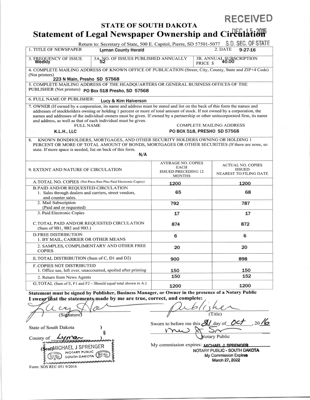 RECEIVED
STATE OF SOUTH DAKOTA
Statement of Legal Newspaper Ownership and Circulation
Return to: Secretary of State, 500 E. Capitol, Pierre, SD 57501-5077 S.D. SEC. OF STATE
1. TITLE OF NEWSPAPER Lyman County Herald 2. DATE 9-27-16
3. FREQUENCY OF ISSUE Weekly 3A. NO. OF ISSUES PUBLISHED ANNUALLY 52 3B. ANNUAL SUBSCRIPTION PRICE $ 40.00
4. COMPLETE MAILING ADDRESS OF KNOWN OFFICE OF PUBLICATION (Street, City, County, State and ZIP+4 Code) (Not printers)
223 N Main, Presho SD 57568
5. COMPLETE MAILING ADDRESS OF THE HEADQUARTERS OR GENERAL BUSINESS OFFICES OF THE
PUBLISHER (Not printer) PO Box 518 Presho, SD 57568
6. FULL NAME OF PUBLISHER: Lucy & Kim Halverson
7. OWNER (If owned by a corporation, its name and address must be stated and let on the back of this form the names and
addresses of stockholders owning or holding 1 percent or more of total amount of stock. If not owned by a corporation, the
names and addresses of the individual owners must be given. If owned by a partnership or other unincorporated firm, its name
and address, as well as that of each individual must be given.
FULL NAME COMPLETE MAILING ADDRESS
K.L.H., LLC PO BOX 518, PRESHO SD 57568
8. KNOWN BONDHOLDERS, MORTGAGES, AND OTHER SECURITY HOLDERS OWNING OR HOLDING 1
PERCENT OR MORE OF TOTAL AMOUNT OF BONDS, MORTGAGES OR OTHER SECURITIES (If there are none, so
state. If more space is needed, list on back of this form.
N/A
9. EXTENT AND NATURE OF CIRCULATION AVERAGE NO. COPIES EACH ISSUED PRECEDING 12 MONTHS ACTUAL NO. COPIES ISSUED NEAREST TO FILING DATE
A. TOTAL NO. COPIES 1200 1200
B. PAID AND/OR REQUESTED CIRCULATION
1. Sales through dealers and carriers, street vendors, and counter sales. 65 68
2. Mail Subscription (Paid and or requested) 792 787
3. Paid Electronic Copies 17 17
C. TOTAL PAID AND/OR REQUESTED CIRCULATION (Sum of 9B1, 9B2 and 9B3.) 874 872
D. FREE DISTRIBUTION
1. BY MAIL, CARRIER OR OTHER MEANS 6 6
2. SAMPLES, COMPLIMENTARY AND OTHER FREE COPIES 20 20
E. TOTAL DISTRIBUTION (Sum of C, D1 and D2) 900 898
F. COPIES NOT DISTRIBUTED
1. Office use, left over, unaccounted, spoiled after printing 150 150
2. Return from News Agents 150 152
G. TOTAL (Sum of E, F1 and F2 - Should equal total shown in A.) 1200 1200
Statement must be signed by Publisher, Business Manager, or Owner in the presence of a Notary Public
I swear that the statements made by me are true, correct, and complete:
Publisher
(Signature) (Title)
State of South Dakota
Sworn to before me this day of Oct, 2016
County of Lyman
Notary Public
MICHAEL J SPRENGER
NOTARY PUBLIC
SOUTH DAKOTA
My commission expires: MICHAEL J SPRENGER
NOTARY PUBLIC - SOUTH DAKOTA
My Commission Expires
March 27, 2022